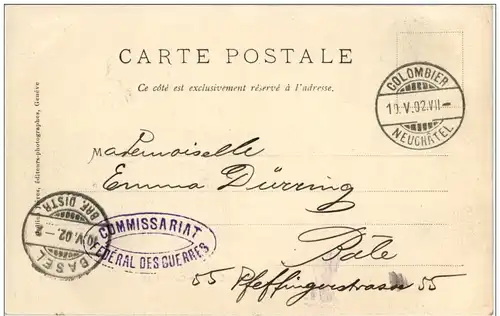 CARTE POSTALE
Ce côté est exclusivement réservé à l'adresse.
COLOMBIER
10.V.02.VII–
NEUCHÂTEL
Mademoiselle
Emma Dürring
Bâle
55 Pfeffingerstrasse 55
COMMISSARIAT
FÉDÉRAL DES GUERRES
BRF. DISTR.
10.V.02.–
BASEL
éditeurs-photographes, Genève